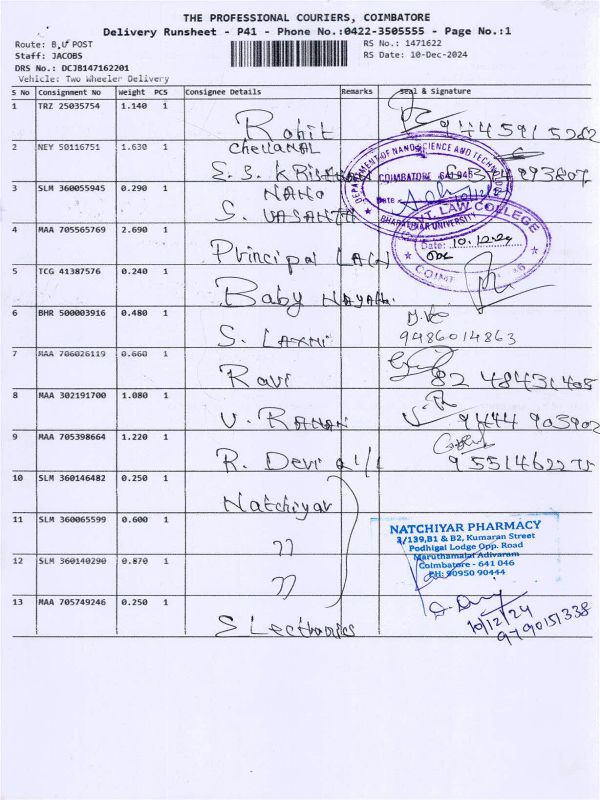 THE PROFESSIONAL COURIERS, COIMBATORE
Delivery Runsheet - P41 - Phone No.:0422-3505555 - Page No.:1
Route: B,U POST
RS No.: 1471622
Staff: JACOBS
RS Date: 10-Dec-2024
DRS No.: DCJB147162201
Vehicle: Two Wheeler Delivery
S No Consignment No Weight PCS Consignee Details Remarks Seal & Signature
1 TRZ 25035754 1.140 1 Rohit
2 NEY 50116751 1.630 1 E. S. KRISHNAN
DEPARTMENT OF NANOSCIENCE AND TECHNOLOGY
COIMBATORE 641 046
Date
BHARATHIAR UNIVERSITY
3 SLM 360055945 0.290 1 NANO
S. VASANTH
LAW COLLEGE
Date: 10.12.24
4 MAA 705565769 2.690 1 Principal LAW
5 TCG 41387576 0.240 1 Baby
6 BHR 500003916 0.480 1 S. LAXMI 9486014863
7 MAA 706026119 0.660 1 Ravi 82 48431405
8 MAA 302191700 1.080 1 V. RAMAN 9444 903902
9 MAA 705398664 1.220 1 R. Devi
10 SLM 360146482 0.250 1 Natchiyar
11 SLM 360065599 0.600 1 "
NATCHIYAR PHARMACY
3/139,B1 & B2, Kumaran Street
Podhigai Lodge Opp. Road
Maruthamalai Adivaram
Coimbatore - 641 046
PH: 90950 90444
12 SLM 360140290 0.870 1 "
13 MAA 705749246 0.250 1 S Lectronics
10/12/24
9790151338